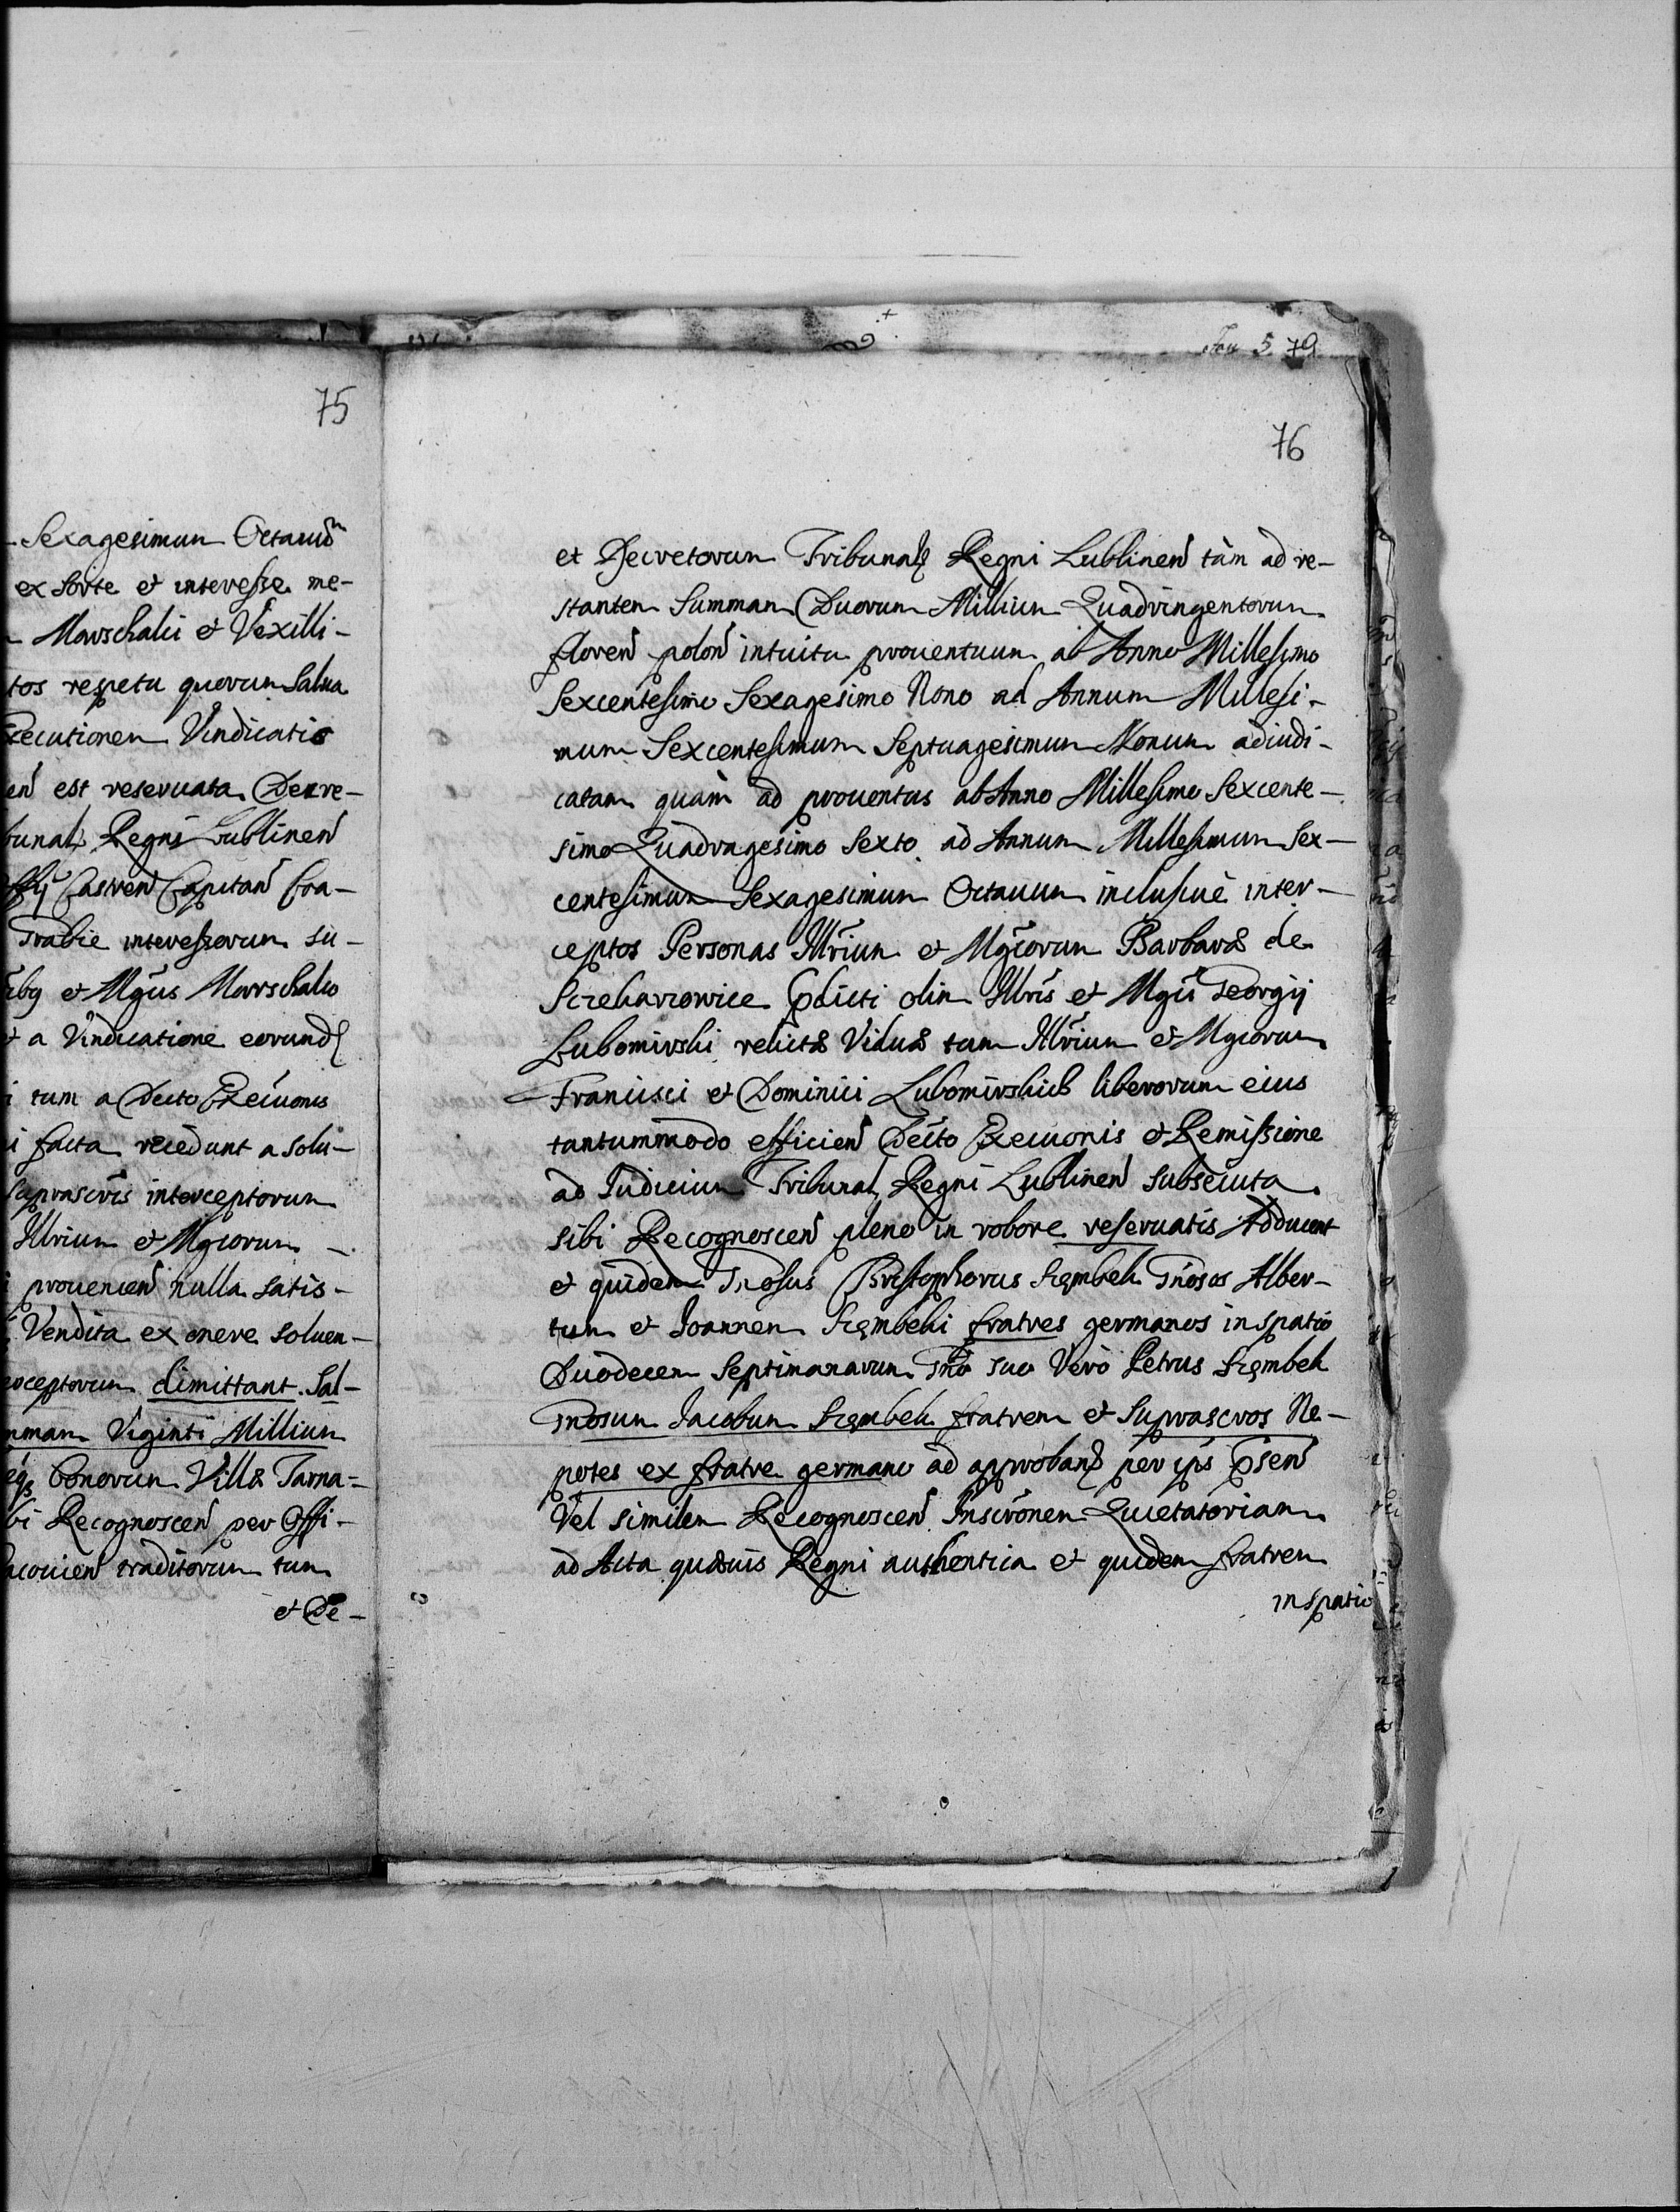 75
Sexagesimum Octauũ
ex sorte et interesse me-
Marschalci et Vexilli-
tos respetu quorum salua
xecutionem Vindicatio
est reseruata Decre-
bunal Regni Lublinen̄
Castren̄ Capitan̄ Cra-
Gratie interessorum su-
et Mgcus Marschalco
et a Vindicatione eorund
tum a Decto Exeuonis
facta recedunt a solu-
suprascris interceptorum
Illrium et Mgcorum
prouenien̄ nulla satis-
Vendita ex onere soluen-
ceptorum dimittant. Sal-
mmam Viginti Millium
bonorum Villæ Tarna-
bi Recognoscen̄ per Offi-
acouien̄ traditorum tum
et De-
79
76
et Decretorum Tribunal Regni Lublinen̄ tàm ad re-
stantem Summam Duorum Millium Quadringentorum
floren̄ polon̄ intuitu prouentuum ab Anno Millesimo
Sexcentesimo Sexagesimo Nono ad Annum Millesi-
mum Sexcentesimum Septuagesimum Nonum adiudi-
catam quàm ad prouentus ab Anno Millesimo Sexcente-
simo Quadragesimo Sexto ad Annum Millesimum Sex-
centesimum Sexagesimum Octauum inclusiuè inter-
ceptos Personas Illrium et Mgcorum Barbaræ de
Sczekarzowice pdicti olim Illris et Mgci Georgij
Lubomirski relictæ Viduæ tum Illrium et Mgcorum
Francisci et Dominici Lubomirskich liberorum eius
tantummodo efficien̄ Decto Exeuonis et Remissione
ad Iudicium Tribunal Regni Lublinen̄ subsecuta
sibi Recognoscen̄ pleno in robore reseruatis Adducent
et quidem Gnosus Christophorus Szembek Gnosos Alber-
tum et Joannem Szembeki fratres germanos in spatio
Duodecem Septimanarum Gnõ suo Verò Petrus Szembek
Gnosum Jacobum Szembek fratrem et Suprascros Ne-
potes ex fratre germano ad approband per ips psen̄
Vel similem Recognoscen̄ Inscrõnem Quietatoriam
ad Acta quæuis Regni authentica et quidem fratrem
in spatio